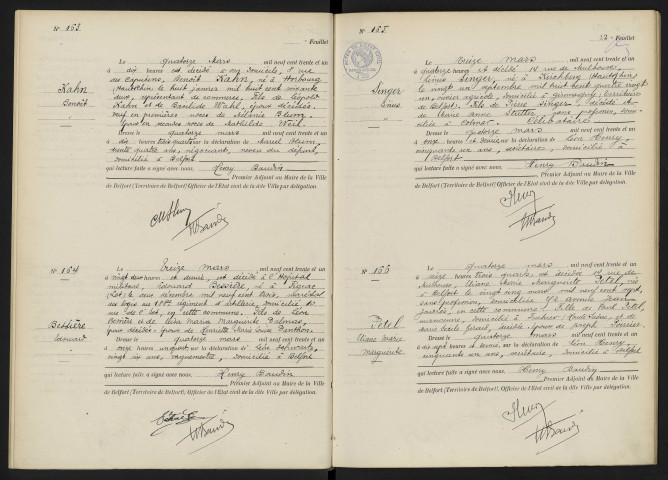 N° 153
Kahn
Benoît
Le quatorze Mars mil neuf cent trente et un
à dix heures est décédé en son domicile, 8 rue
des Capucins, Benoît Kahn, né à Horbourg
(Haut-Rhin) le huit janvier mil huit cent soixante
deux, représentant de commerce, fils de Léopold
Kahn et de Wahl, époux décédés.
Veuf en premières noces de Mélanie Blum.
Époux en secondes noces de Mathilde Weil.
Dressé le quatorze mars mil neuf cent trente et un
à dix heures sur la déclaration de Marcel Blum,
quatre ans, négociant, neveu du défunt,
domicilié à Belfort
qui lecture faite a signé avec nous, Henry Baudin
Premier Adjoint au Maire de la Ville
de Belfort (Territoire de Belfort) Officier de l'Etat civil de la dite Ville par délégation.
N° 154
Bessière
Edouard
Le treize mars mil neuf cent trente et un
à vingt heures et demie, est décédé à l'hôpital
militaire, Edouard Bessière, né à
(Lot) le deux décembre mil neuf cent trois, maréchal
des logis au régiment d'artillerie, domicilié
rue de l'Est, en cette commune. Fils de Léon
Bessière et de Maria Marguerite Dalmas,
époux de Marie Louise Penthon.
Dressé le quatorze mars mil neuf cent trente et un
à onze heures sur la déclaration de Léon Schwartz,
vingt six ans, domicilié à Belfort
qui lecture faite a signé avec nous, Henry Baudin
Premier Adjoint au Maire de la Ville
de Belfort (Territoire de Belfort) Officier de l'Etat civil de la dite Ville par délégation.
N° 155
Feuillet
Singer
Le treize mars mil neuf cent trente et un
à quatorze heures est décédé 14 rue de Mulhouse,
Singer, né à Kirchberg (Haut-Rhin)
le vingt un septembre mil huit cent quatre vingt
un, ouvrier agricole, domicilié à (Territoire
de Belfort). Fils de Pierre Singer, décédé et
de Marie Anne sans profession,
domiciliée à Colmar. Célibataire
Dressé le quatorze mars mil neuf cent trente et un
à onze heures sur la déclaration de Léon Henry,
cinquante six ans, secrétaire, domicilié à
Belfort
qui lecture faite a signé avec nous, Henry Baudin
Premier Adjoint au Maire de la Ville
de Belfort (Territoire de Belfort) Officier de l'Etat civil de la dite Ville par délégation.
N° 156
Petel
Eliane Marie
Marguerite
Le quatorze mars mil neuf cent trente et un
à seize heures trois quarts est décédée 14 rue de
Mulhouse, Eliane Marie Marguerite Petel, née
à Belfort le vingt cinq mars mil neuf cent sept,
sans profession, domiciliée avenue Jean
Jaurès, en cette commune. Fille de Paul Petel,
domicilié à (Haute Saône) et de
décédée. Épouse de
Dressé le quatorze mars mil neuf cent trente et un
à dix sept heures, sur la déclaration de Léon Henry,
cinquante six ans, secrétaire, domicilié à Belfort
qui lecture faite a signé avec nous, Henry Baudin
Premier Adjoint au Maire de la Ville
de Belfort (Territoire de Belfort) Officier de l'Etat civil de la dite Ville par délégation.